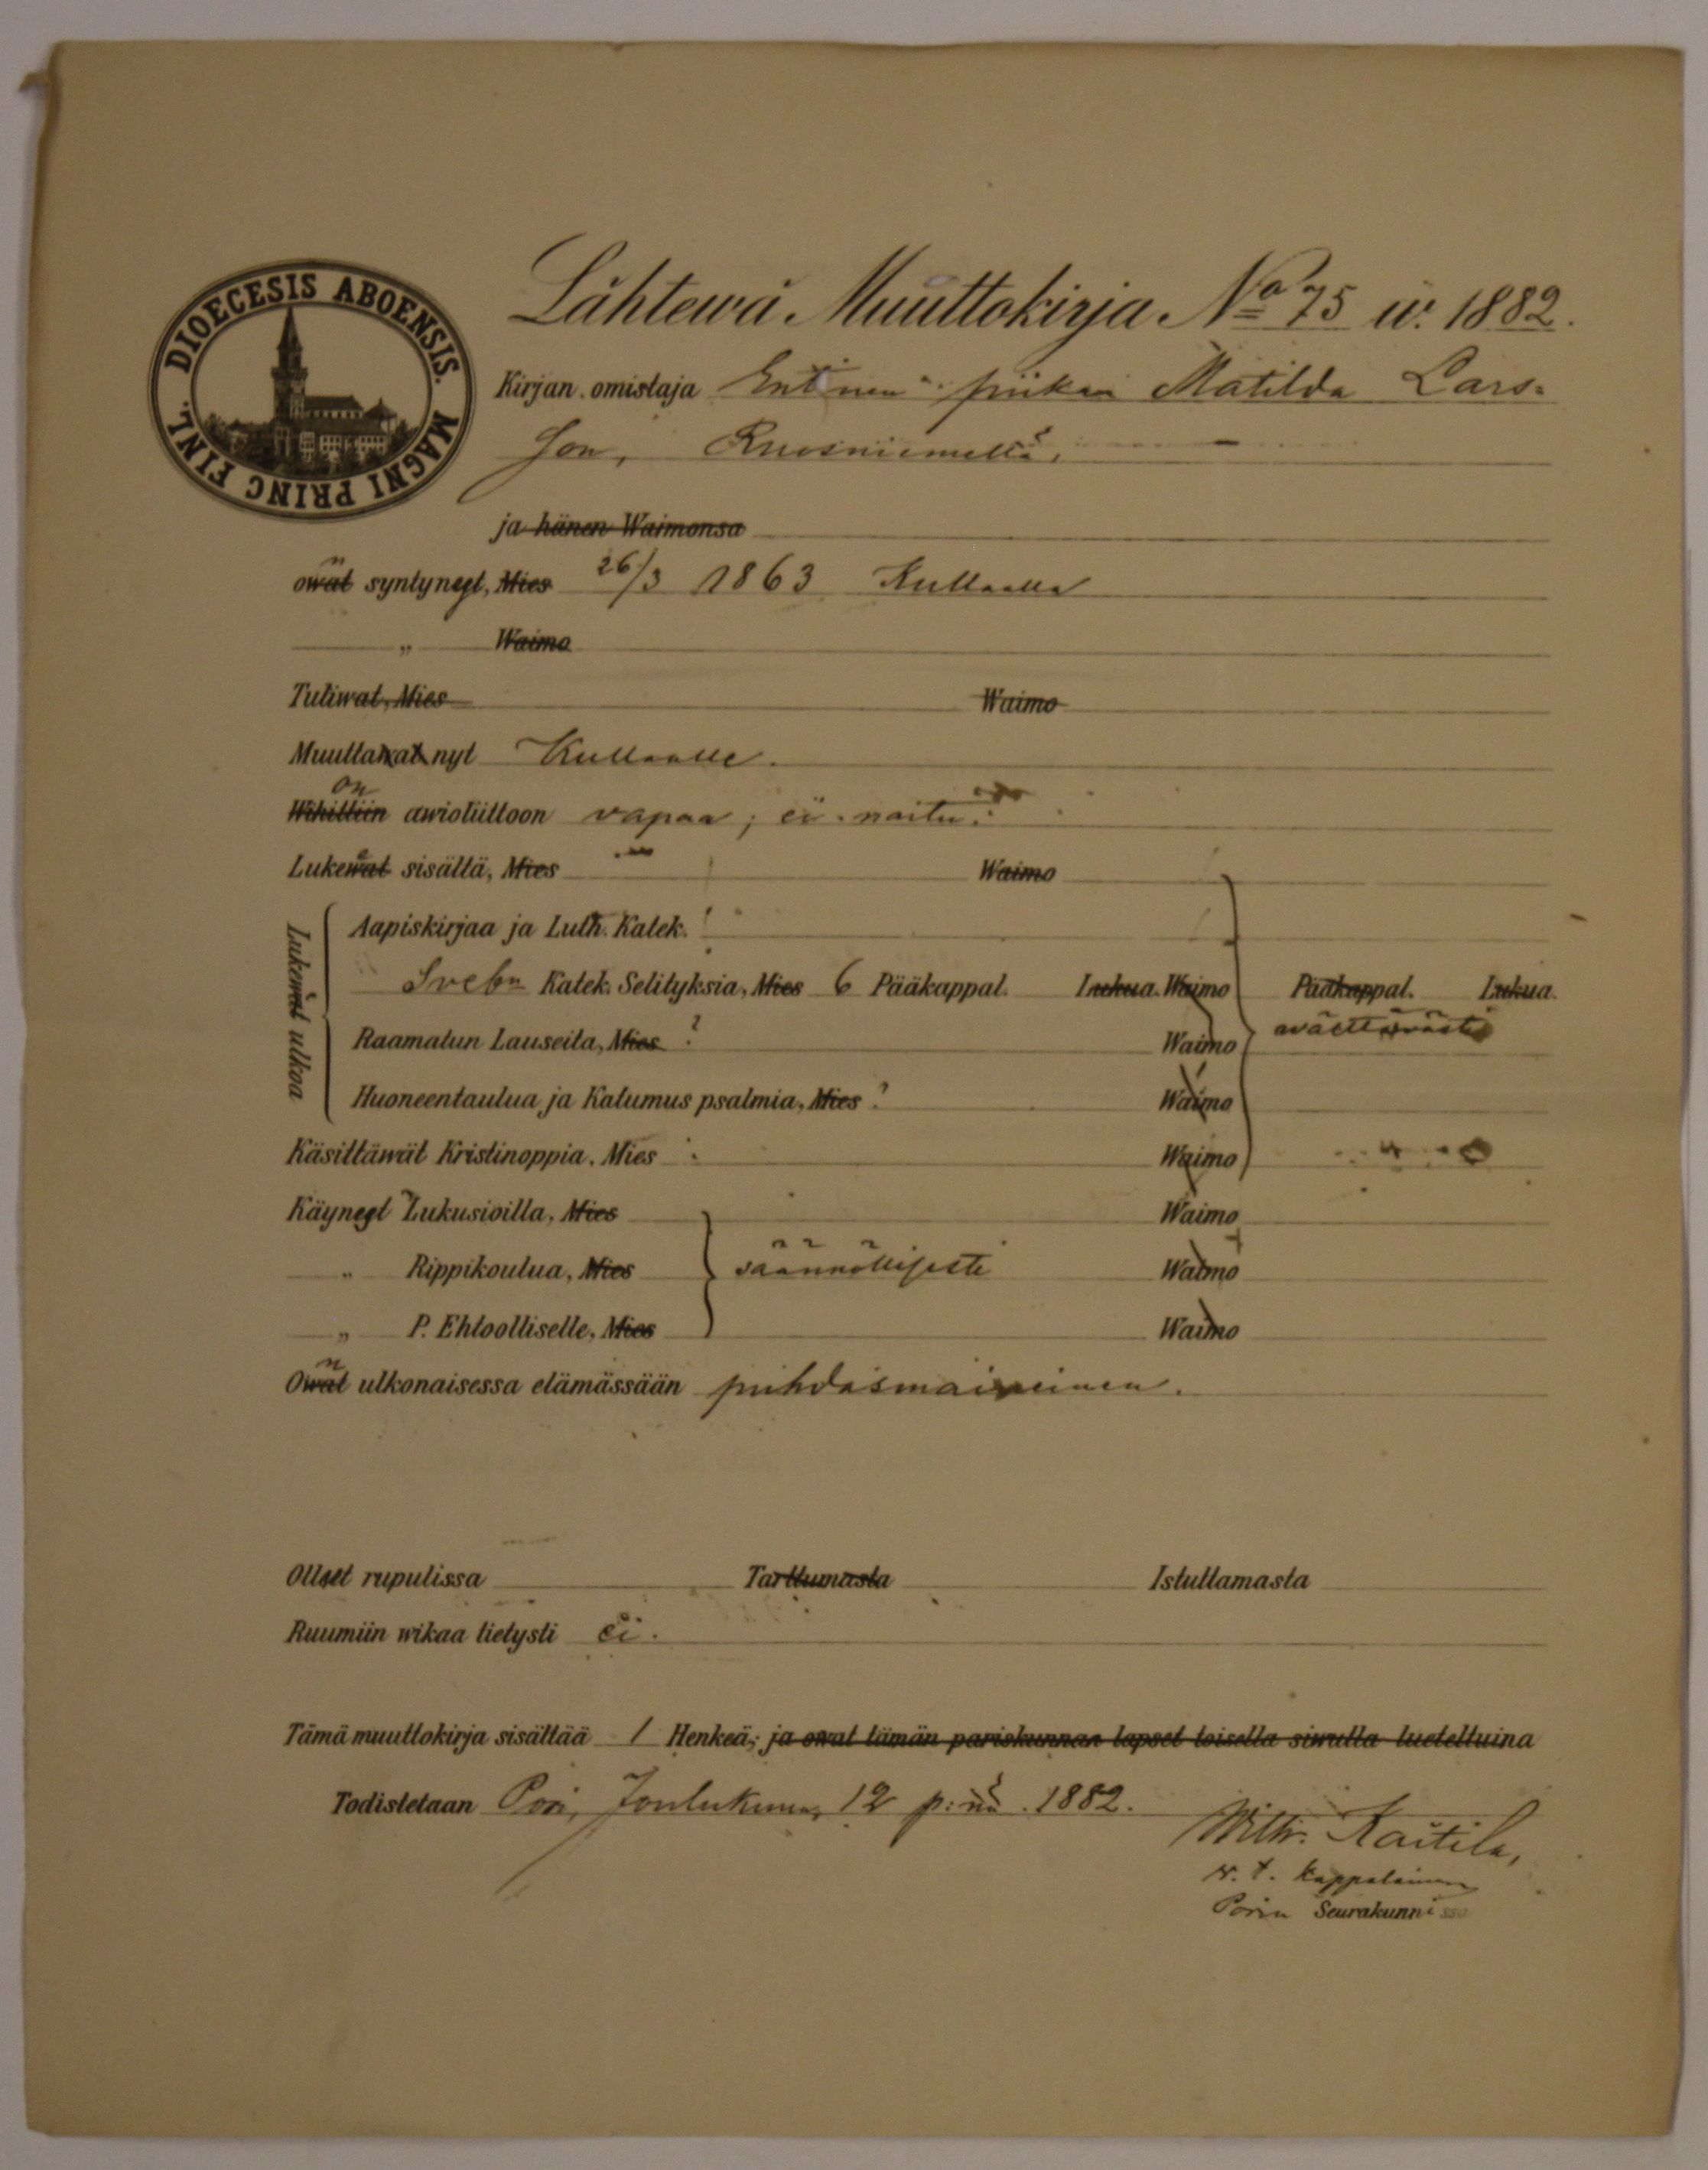 DIOECESIS ABOENSIS. MAGNI PRINC FINL.
Lähtewä Muuttokirja No 75 w. 1882.
Kirjan omistaja Entinen piika Matilda Lars=
son, Ruosniemeltä,
ja hänen Waimonsa
owat syntynegt, Mies 26/3 1863 Kullaalla
„ Waimo
Tuliwat, Mies Waimo
Muuttawat nyt Kullaalle.
Wihittiin on awioliittoon vapaa; ei naitu.
Lukewat sisältä, Mies Waimo
Lukewat ulkoa
Aapiskirjaa ja Luth. Katek.
Sveb:n Katek. Selityksiä, Mies 6 Pääkappal. Lukua. Waimo Pääkappal. Lukua.
Raamatun Lauseita, Mies Waimo wälttäwästi
Huoneentaulua ja Katumus psalmia, Mies Waimo
Käsittäwät Kristinoppia. Mies Waimo
Käynegt Lukusioilla, Mies Waimo
„ Rippikoulua, Mies säännöllisesti Waimo
„ P. Ehtoolliselle, Mies Waimo
Owat ulkonaisessa elämässään puhdasmaineinen.
Ollset rupulissa Tarttumasta Istuttamasta
Ruumiin wikaa tietysti ei.
Tämä muuttokirja sisältää 1 Henkeä; ja owat tämän pariskunnan lapset toisella siwulla lueteltuina
Todistetaan Pori, Joulukuun 12 p:nä 1882.
Wilh. Kaitila,
v. t. kappalainen
Porin Seurakunnissa